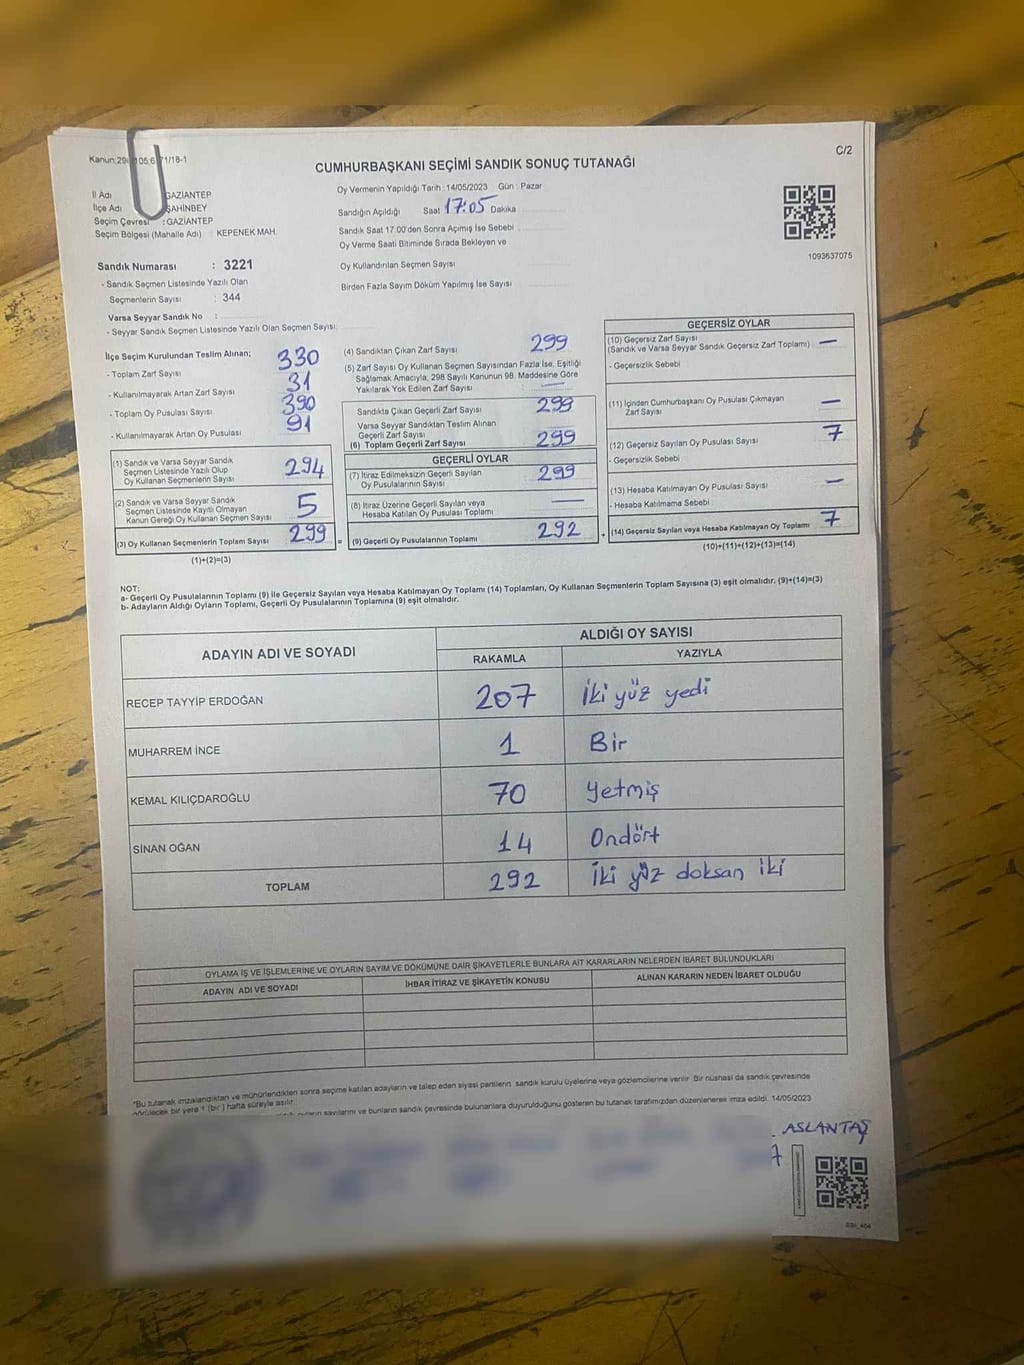 Kanun:298
105;6
71/18-1
C/2
CUMHURBAŞKANI SEÇİMİ SANDIK SONUÇ TUTANAĞI
İl Adı GAZİANTEP
İlçe Adı ŞAHİNBEY
Seçim Çevresi : GAZİANTEP
Seçim Bölgesi (Mahalle Adı) : KEPENEK MAH.
Sandık Numarası : 3221
- Sandık Seçmen Listesinde Yazılı Olan
Seçmenlerin Sayısı : 344
Varsa Seyyar Sandık No :
- Seyyar Sandık Seçmen Listesinde Yazılı Olan Seçmen Sayısı:
Oy Vermenin Yapıldığı Tarih : 14/05/2023 Gün : Pazar
Sandığın Açıldığı Saat 17:05 Dakika
Sandık Saat 17:00'den Sonra Açımış İse Sebebi
Oy Verme Saati Bitiminde Sırada Bekleyen ve
Oy Kullandırılan Seçmen Sayısı
Birden Fazla Sayım Döküm Yapılmış İse Sayısı
1093637075
İlçe Seçim Kurulundan Teslim Alınan;
- Toplam Zarf Sayısı 330
- Kullanılmayarak Artan Zarf Sayısı 31
- Toplam Oy Pusulası Sayısı 390
- Kullanılmayarak Artan Oy Pusulası 91
(1) Sandık ve Varsa Seyyar Sandık
Seçmen Listesinde Yazılı Olup
Oy Kullanan Seçmenlerin Sayısı 294
(2) Sandık ve Varsa Seyyar Sandık
Seçmen Listesinde Kayıtlı Olmayan
Kanun Gereği Oy Kullanan Seçmen Sayısı 5
(3) Oy Kullanan Seçmenlerin Toplam Sayısı 299 =
(1)+(2)=(3)
(4) Sandıktan Çıkan Zarf Sayısı 299
(5) Zarf Sayısı Oy Kullanan Seçmen Sayısından Fazla İse, Eşitliği
Sağlamak Amacıyla, 298 Sayılı Kanunun 98. Maddesine Göre
Yakılarak Yok Edilen Zarf Sayısı —
Sandıkta Çıkan Geçerli Zarf Sayısı 299
Varsa Seyyar Sandıktan Teslim Alınan
Geçerli Zarf Sayısı
(6) Toplam Geçerli Zarf Sayısı 299
GEÇERLİ OYLAR
(7) İtiraz Edilmeksizin Geçerli Sayılan
Oy Pusulasının Sayısı 299
(8) İtiraz Üzerine Geçerli Sayılan veya
Hesaba Katılan Oy Pusulası Toplamı —
(9) Geçerli Oy Pusulalarının Toplamı 292 +
GEÇERSİZ OYLAR
(10) Geçersiz Zarf Sayısı
(Sandık ve Varsa Seyyar Sandık Geçersiz Zarf Toplamı) —
- Geçersizlik Sebebi
(11) İçinden Cumhurbaşkanı Oy Pusulası Çıkmayan
Zarf Sayısı —
(12) Geçersiz Sayılan Oy Pusulası Sayısı 7
- Geçersizlik Sebebi
(13) Hesaba Katılmayan Oy Pusulası Sayısı —
- Hesaba Katılmama Sebebi
(14) Geçersiz Sayılan veya Hesaba Katılmayan Oy Toplamı 7
(10)+(11)+(12)+(13)=(14)
NOT:
a- Geçerli Oy Pusulalarının Toplamı (9) ile Geçersiz Sayılan veya Hesaba Katılmayan Oy Toplamı (14) Toplamları, Oy Kullanan Seçmenlerin Toplam Sayısına (3) eşit olmalıdır. (9)+(14)=(3)
b- Adayların Aldığı Oyların Toplamı, Geçerli Oy Pusulalarının Toplamına (9) eşit olmalıdır.
ADAYIN ADI VE SOYADI
ALDIĞI OY SAYISI
RAKAMLA YAZIYLA
RECEP TAYYİP ERDOĞAN 207 İki yüz yedi
MUHARREM İNCE 1 Bir
KEMAL KILIÇDAROĞLU 70 Yetmiş
SİNAN OĞAN 14 Ondört
TOPLAM 292 İki yüz doksan iki
OYLAMA İŞ VE İŞLEMLERİNE VE OYLARIN SAYIM VE DÖKÜMÜNE DAİR ŞİKAYETLERLE BUNLARA AİT KARARLARIN NELERDEN İBARET BULUNDUKLARI
ADAYIN ADI VE SOYADI İHBAR İTİRAZ VE ŞİKAYETİN KONUSU ALINAN KARARIN NEDEN İBARET OLDUĞU
*Bu tutanak imzalandıktan ve mühürlendikten sonra seçime katılan adayların ve talep eden siyasi partilerin sandık kurulu üyelerine veya gözlemcilerine verilir. Bir nüshası da sandık çevresinde
görülecek bir yere 1 (bir) hafta süreyle asılır.
sayılarını ve bunların sandık çevresinde bulunanlara duyurulduğunu gösteren bu tutanak tarafımızdan düzenlenerek imza edildi. 14/05/2023
ASLANTAŞ